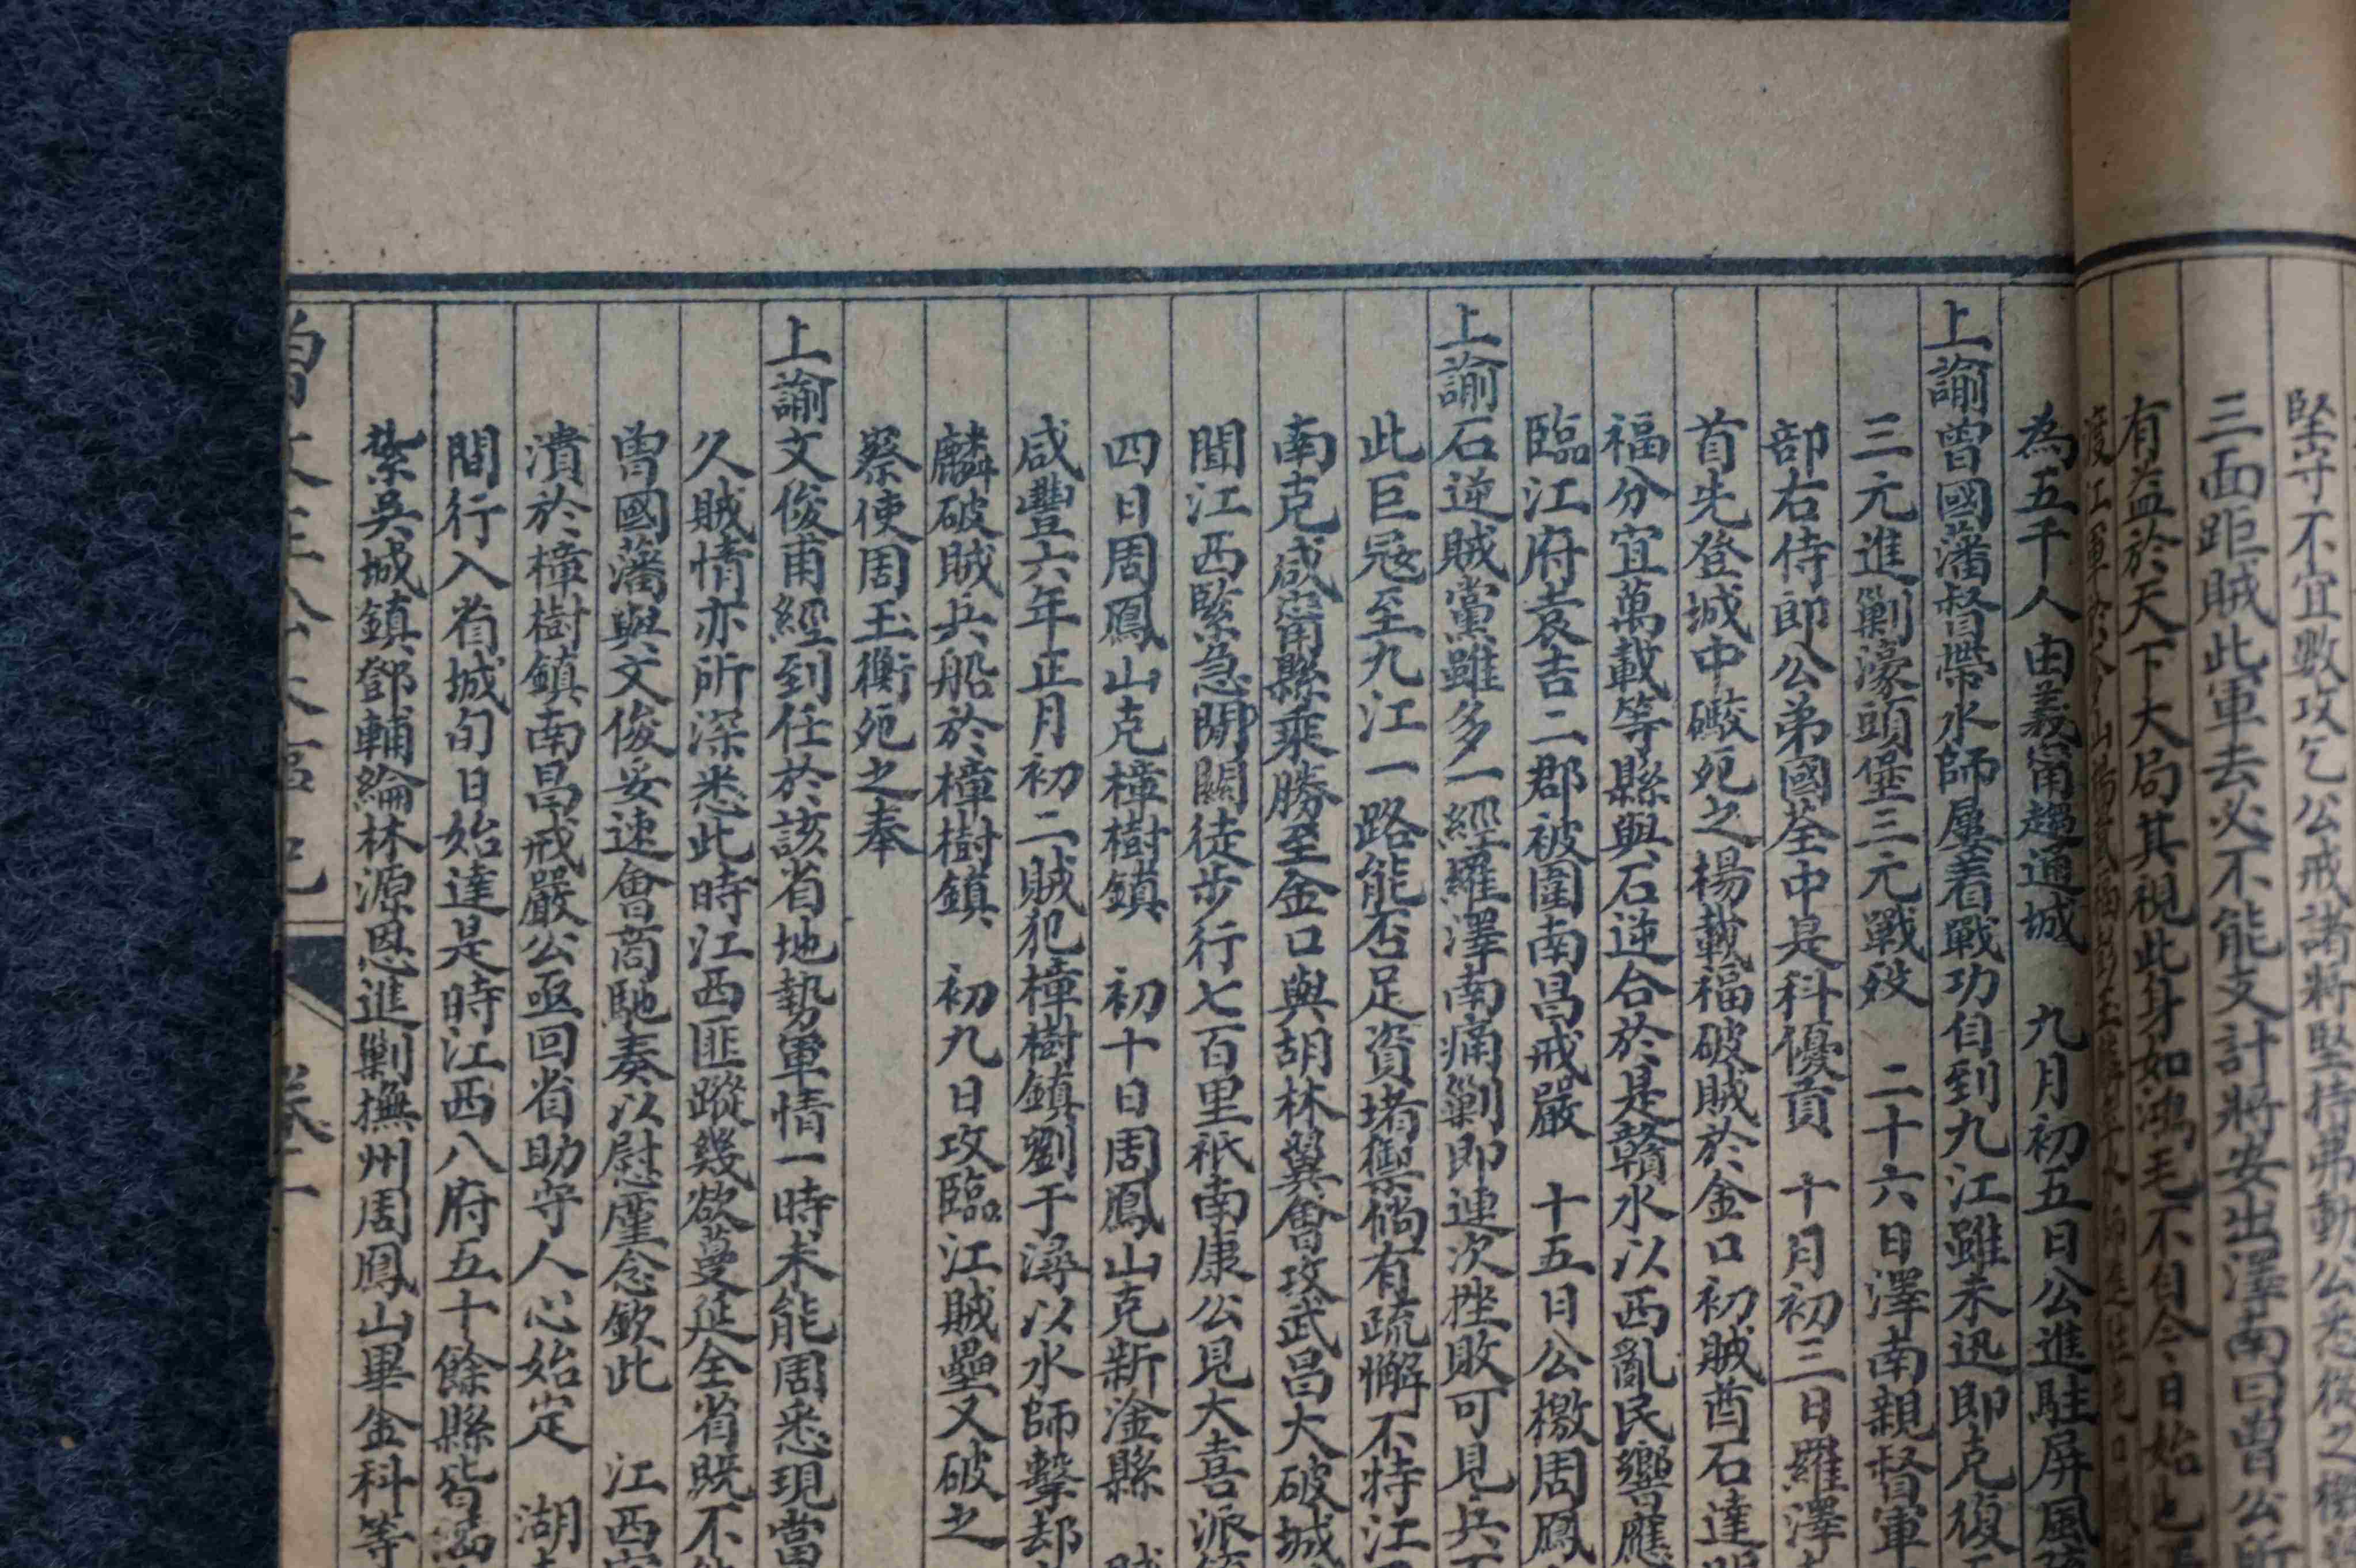 堅守不宜數攻乞公戒諸將堅持弗動公悉從之
三面距賊此軍去必不能支計將安出澤南曰曾公所
有益於天下大局其視此身如鴻毛不自今日始也
渡江軍
為五千人由義甯趨通城　九月初五日公進駐屏風
上諭曾國藩督帶水師屢著戰功自到九江雖未迅即克復
三元進剿濠頭堡三元戰歿　二十六日澤南親督軍
部右侍郎公弟國荃中是科優貢　十月初三日羅澤
首先登城中礮死之楊載福破賊於金口初賊酋石達
福分宜萬載等縣與石逆合於是贛水以西亂民響應
臨江府袁吉二郡被圍南昌戒嚴　十五日公檄周鳳
上諭石逆賊黨雖多一經羅澤南痛剿即連次挫敗可見兵
此巨寇至九江一路能否足資堵禦倘有疏懈不特江
南克咸甯縣乘勝至金口與胡林翼會攻武昌大破城
聞江西緊急閒關徒步行七百里祇南康公見大喜派
四日周鳳山克樟樹鎮　初十日周鳳山克新淦縣
咸豐六年正月初二賊犯樟樹鎮劉于潯以水師擊却
麟破賊兵船於樟樹鎮　初九日攻臨江賊壘又破之
察使周玉衡死之奉
上諭文俊甫經到任於該省地勢軍情一時未能周悉現當
久賊情亦所深悉此時江西匪蹤幾欲蔓延全省既不
曾國藩與文俊妥速會商馳奏以慰廑念欽此　江西
潰於樟樹鎮南昌戒嚴公亟回省助守人心始定　湖
間行入省城旬日始達是時江西八府五十餘縣皆
紮吳城鎮鄧輔綸林源恩進剿撫州周鳳山畢金科等
曾文正公大事記　卷一